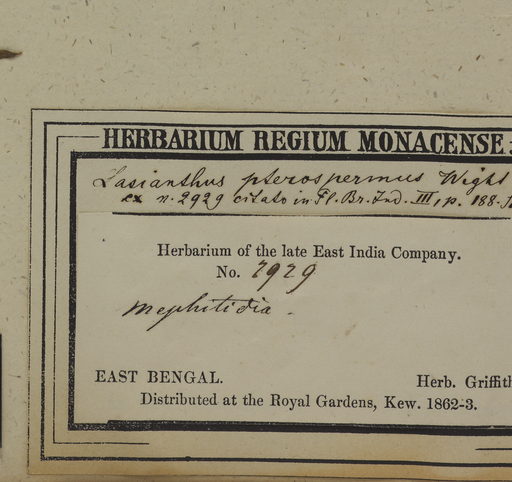 HERBARIUM REGIUM MONACENSE
Lasianthus pterospermus Wight
ex n. 2929 citato in Fl. Br. Ind. III, p. 188.
Herbarium of the late East India Company.
No. 2929
Mephitidia.
EAST BENGAL.
Herb. Griffith
Distributed at the Royal Gardens, Kew. 1862-3.